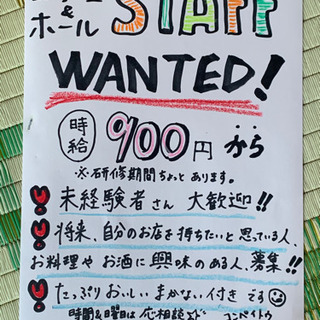 & STAFF
ホール
WANTED!
時給 900円から
※研修期間ちょっとあります。
未経験者さん 大歓迎!!
将来、自分のお店を持ちたいと思っている人、
お料理やお酒に興味のある人、募集!!
たっぷりおいしいまかない付きです
時間&曜日は応相談です コンペイトウ